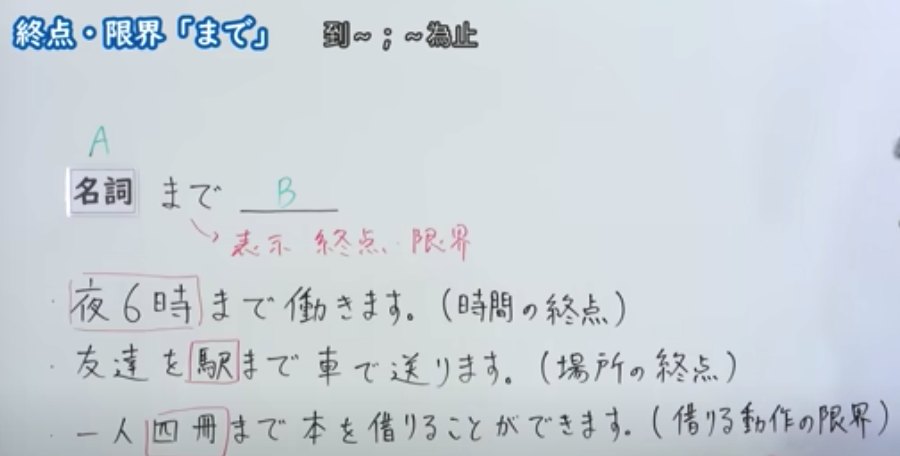 終点・限界「まで」 到~;~為止
A
名詞 まで B
表示 終点・限界
・夜6時まで働きます。(時間の終点)
・友達を駅まで車で送ります。(場所の終点)
・一人四冊まで本を借りることができます。(借りる動作の限界)